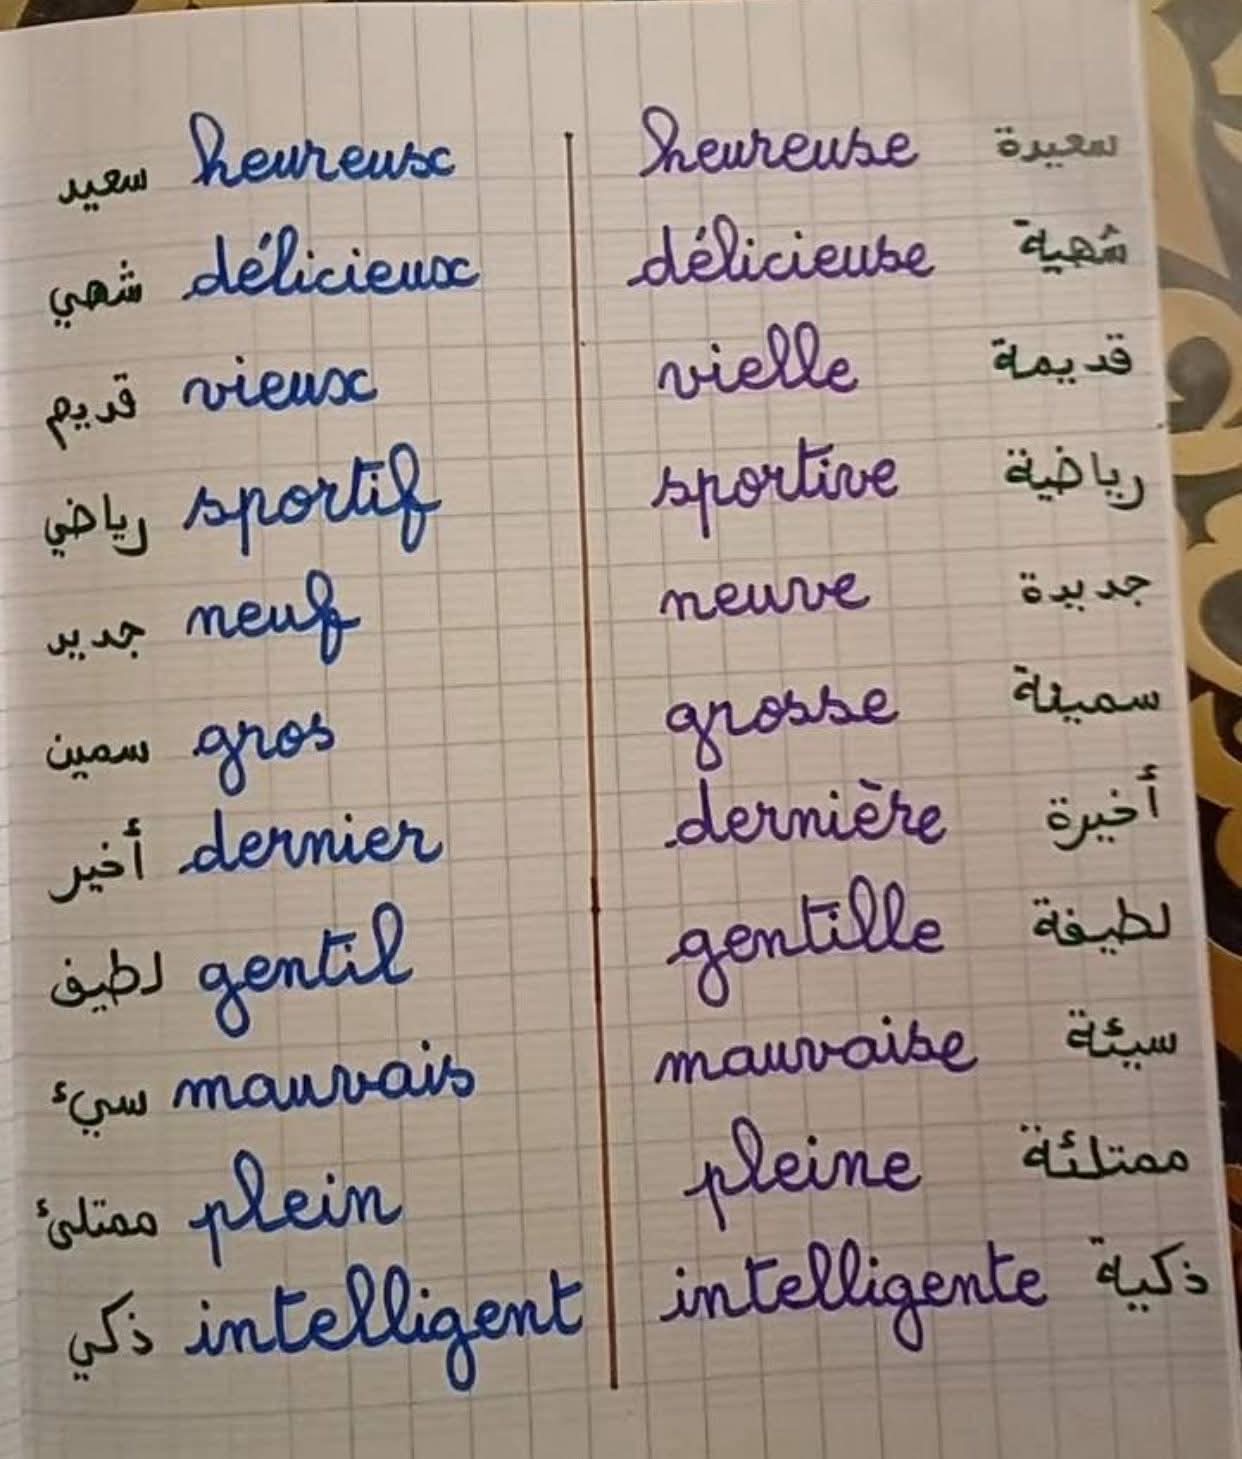 سعيد heureux heureuse سعيدة
شهي délicieux délicieuse شهية
قديم vieux vielle قديمة
رياضي sportif sportive رياضية
جديد neuf neuve جديدة
سمين gros grosse سمينة
أخير dernier dernière أخيرة
لطيف gentil gentille لطيفة
سيء mauvais mauvaise سيئة
ممتلئ plein pleine ممتلئة
ذكي intelligent intelligente ذكية